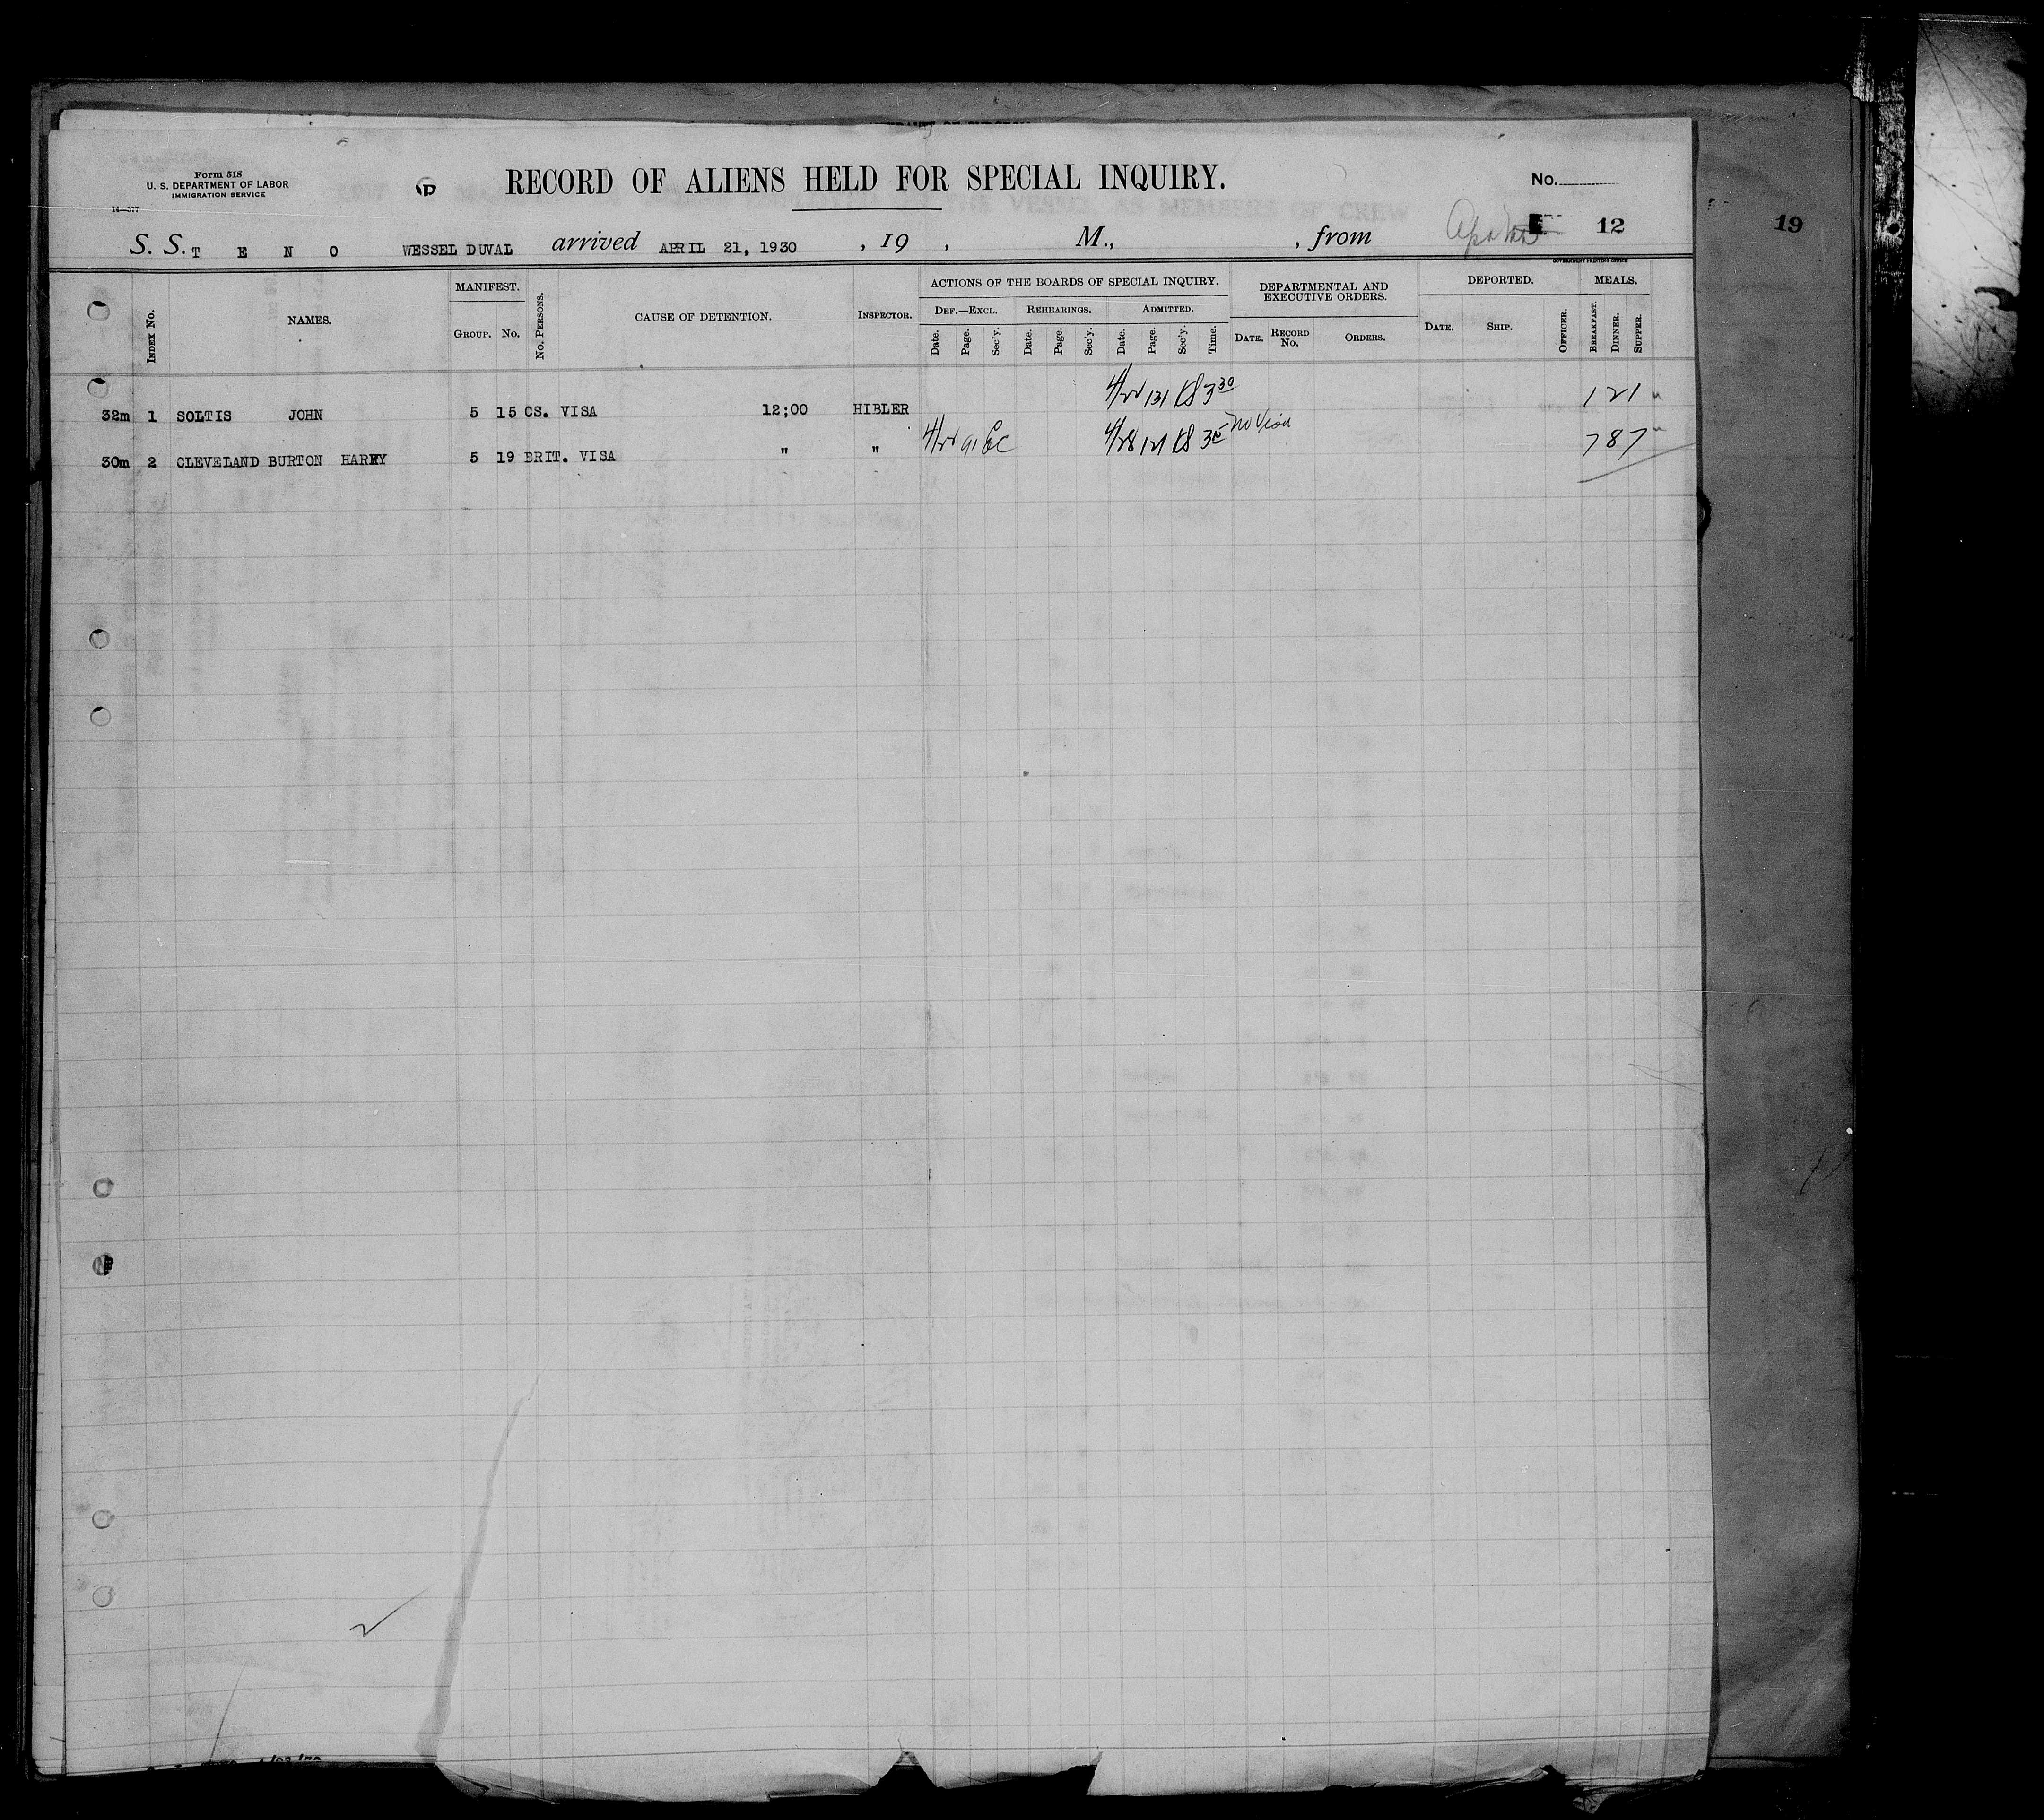 Form 518
U. S. DEPARTMENT OF LABOR
IMMIGRATION SERVICE
14—377
P
RECORD OF ALIENS HELD FOR SPECIAL INQUIRY.
No.
S. S. T E N O WESSEL DUVAL arrived APRIL 21, 1930 , 19 , M., , from 12
19
GOVERNMENT PRINTING OFFICE
INDEX No.
NAMES.
MANIFEST.
GROUP. No.
No. PERSONS.
CAUSE OF DETENTION.
INSPECTOR.
ACTIONS OF THE BOARDS OF SPECIAL INQUIRY.
DEF.—EXCL. REHEARINGS. ADMITTED.
Date. Page. Sec'y. Date. Page. Sec'y. Date. Page. Sec'y. Time.
DEPARTMENTAL AND EXECUTIVE ORDERS.
DATE. RECORD No. ORDERS.
DEPORTED.
DATE. SHIP. OFFICER.
MEALS.
BREAKFAST. DINNER. SUPPER.
32m 1 SOLTIS JOHN 5 15 CS. VISA 12;00 HIBLER 4/22 131 KS 3 30 1 2 1 "
30m 2 CLEVELAND BURTON HARRY 5 19 BRIT. VISA " " 4/22 91 4/28 121 KS 3 No Visa 7 8 7 "